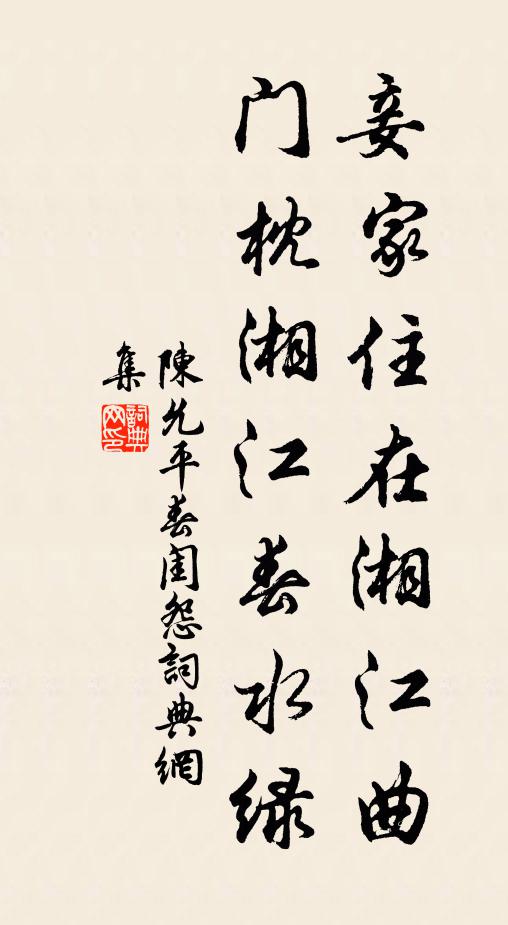 妾家住在湘江曲
门枕湘江春水绿
陳允平春闺怨詞典網
集
詞典
网印